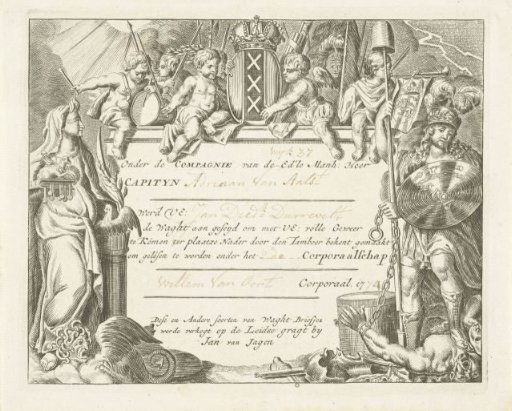 Wyk 37
Onder de COMPAGNIE van de Ed'le Manh: Heer
CAPITYN Adriaan Van Aalst
Werd (VE: Jan
de Waght aan gesegd om met VE: volle Geweer
te Komen ter plaatze Nader door den Tamboer bekent gemaakt
om gelesen te worden onder het Corporaallschap
Willem Van Corporaal. 177
Dese en Andere soorten van Waght Briefjes
werde verkogt op de Leidse gragt by
Jan van Jagen